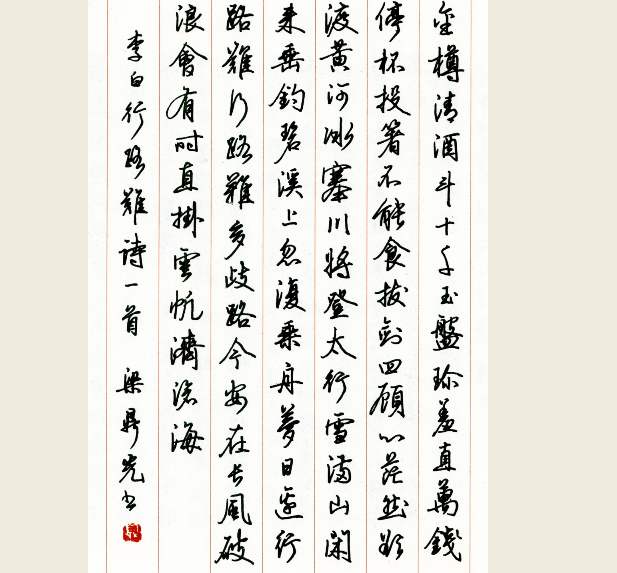 金樽清酒斗十千玉盤珎羞直萬錢
停杯投箸不能食拔劍四顧心茫然欲
渡黃河冰塞川將登太行雪滿山閑
來垂釣碧溪上忽復乘舟夢日邊行
路難行路難多歧路今安在長風破
浪會有時直掛雲帆濟滄海
李白行路難詩一首 梁鼎光書